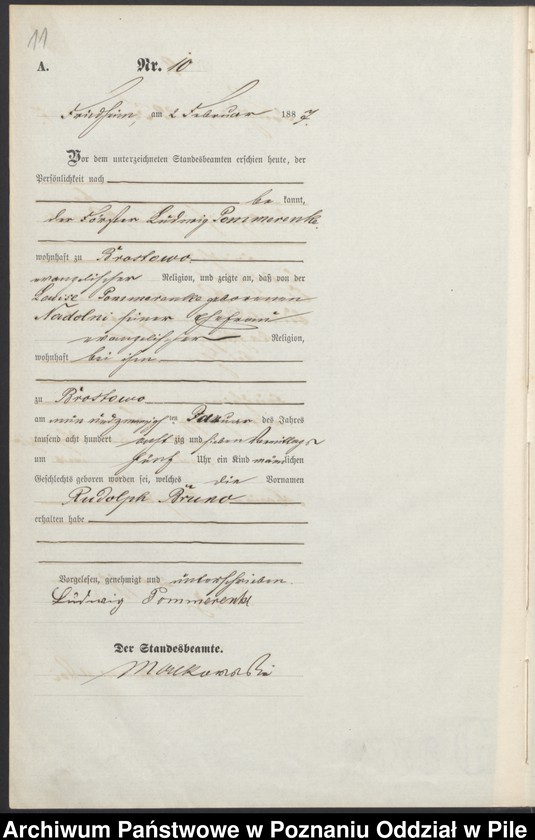 11
A. Nr. 10
Friedheim, am 2 Februar 1887.
Vor dem unterzeichneten Standesbeamten erschien heute, der
Persönlichkeit nach
be kannt,
der Förster Ludwig Pommerenke
wohnhaft zu Brostowo
evangelischer Religion, und zeigte an, daß von der
Louise Pommerenke geborenen
Nadolni seiner Ehefrau
evangelischer Religion,
wohnhaft bei ihm
zu Brostowo
am neun und zwanzigsten Januar des Jahres
tausend acht hundert acht zig und sieben Vormittags
um fünf Uhr ein Kind männlichen
Geschlechts geboren worden sei, welches die Vornamen
Rudolph Bruno
erhalten habe
Vorgelesen, genehmigt und unterschrieben
Ludwig Pommerenke
Der Standesbeamte.
Mackowski
Archiwum Państwowe w Poznaniu Oddział w Pile